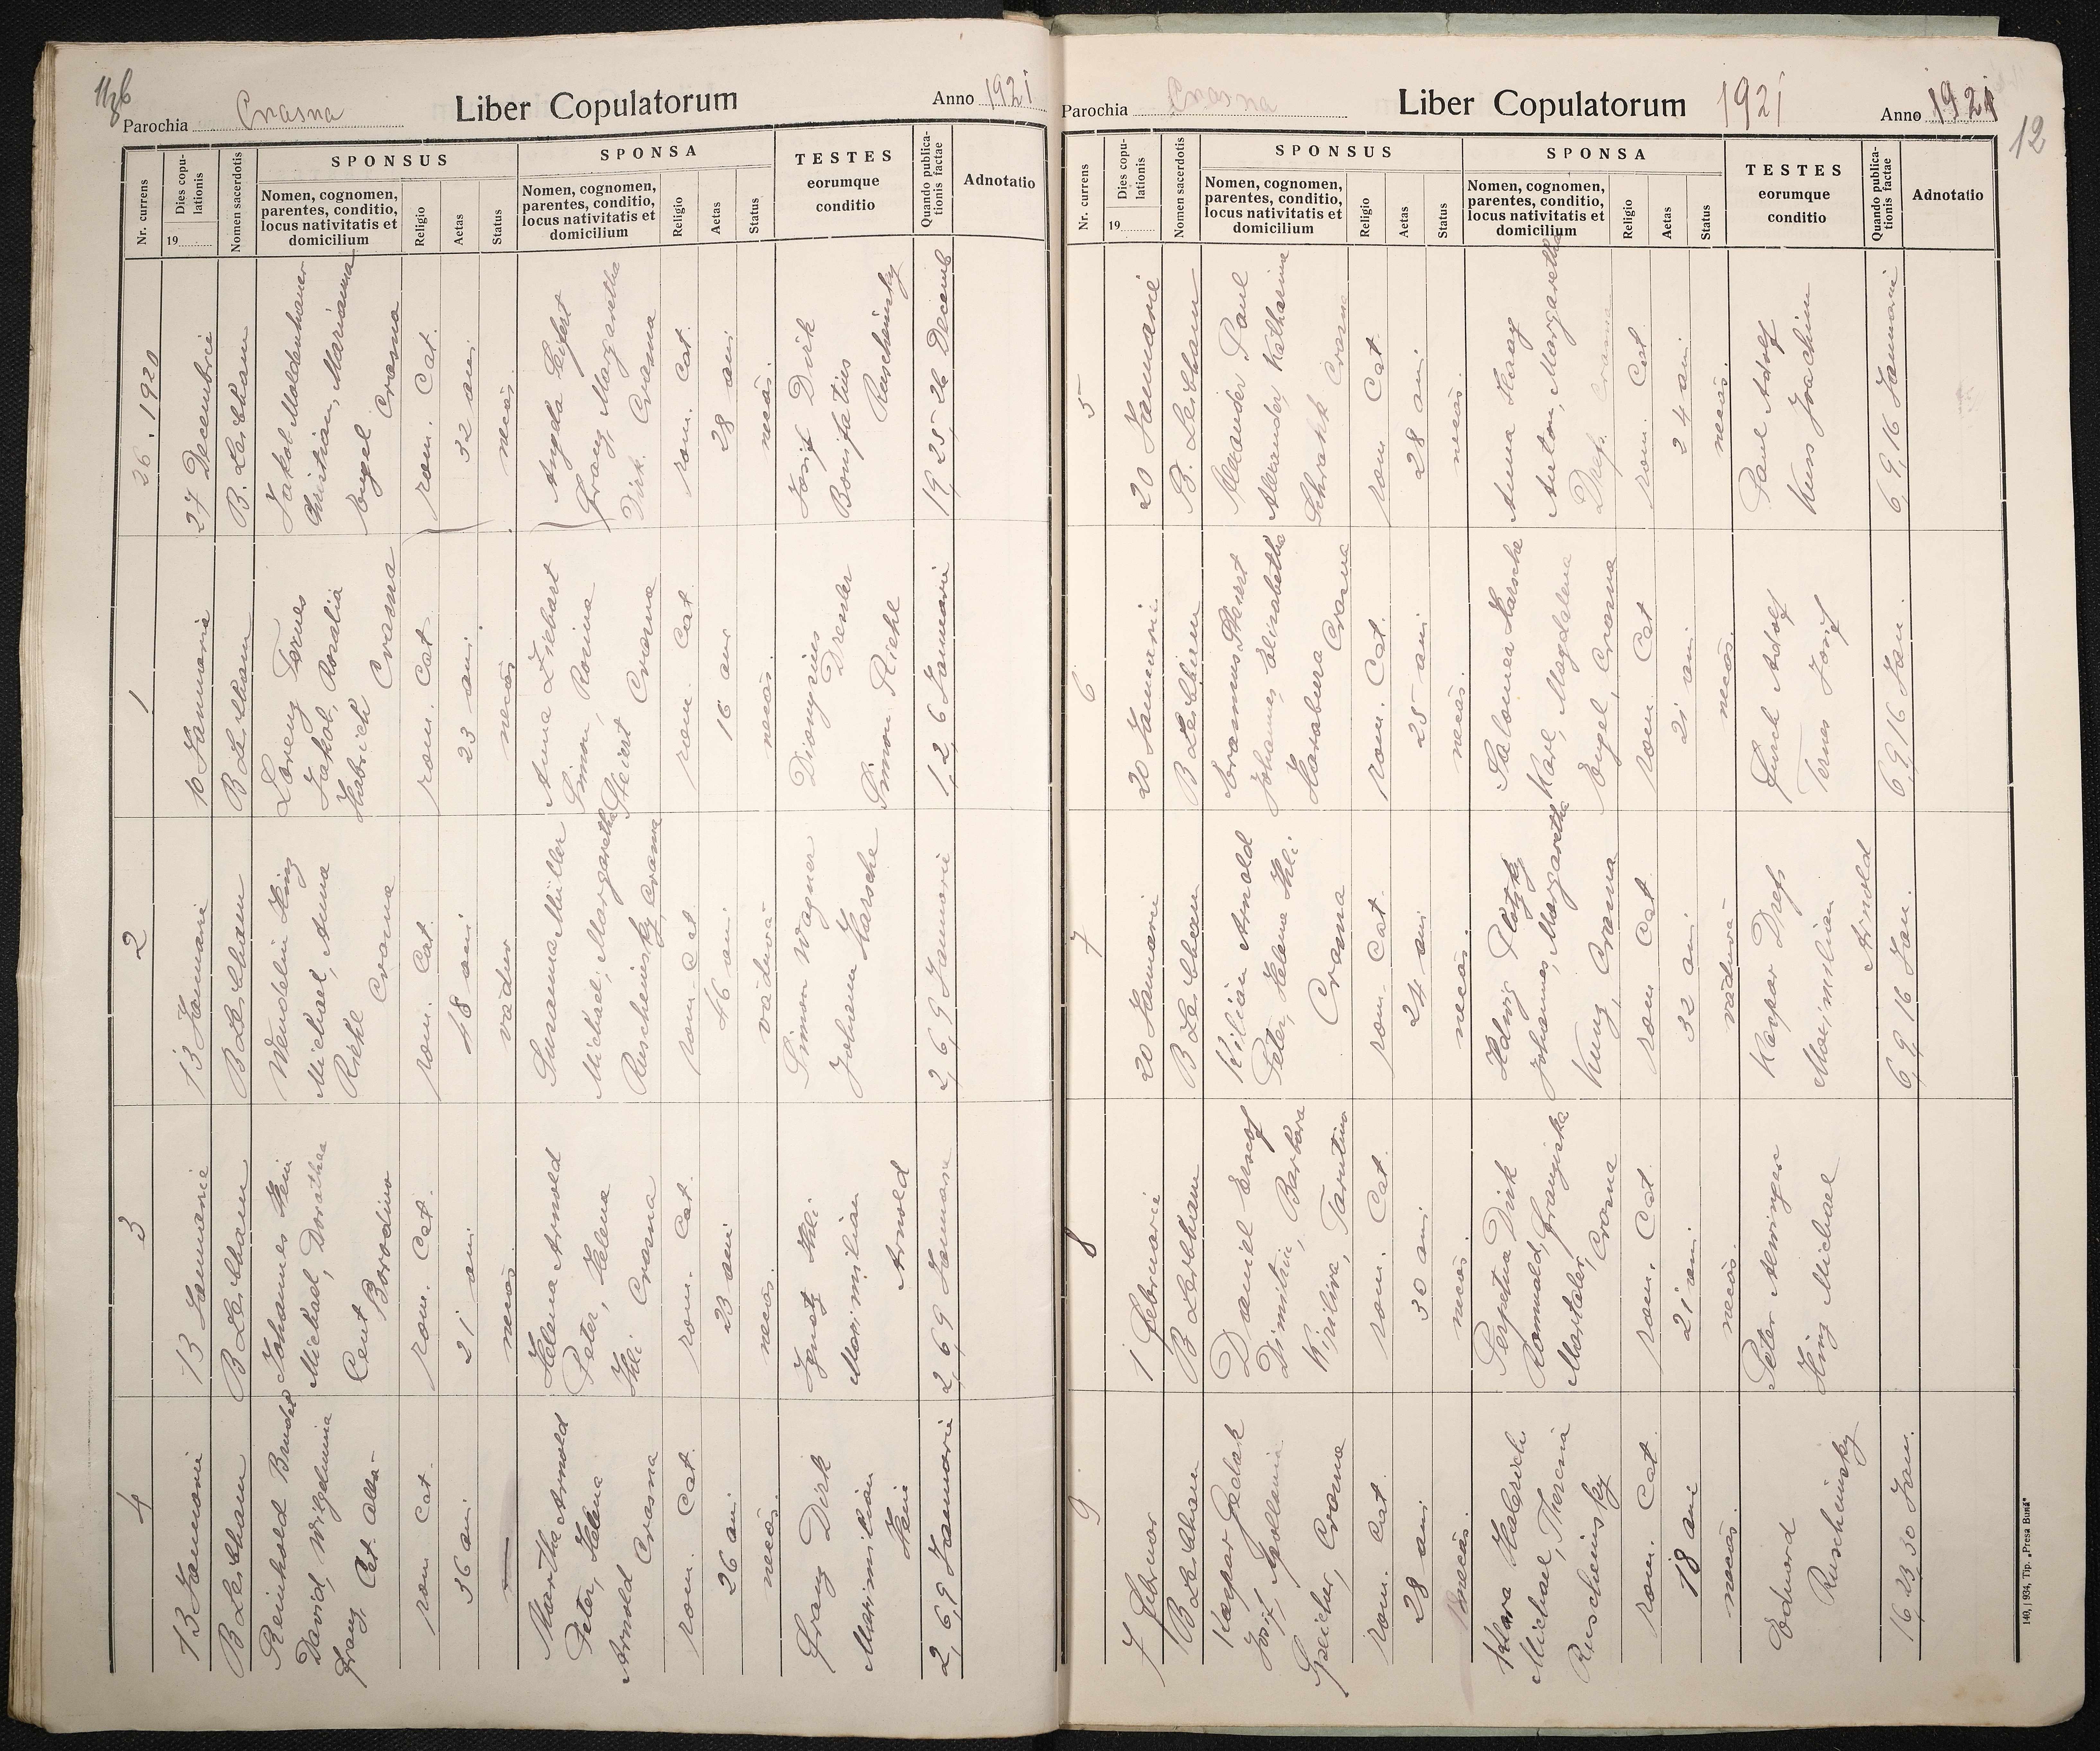 1126
Parochia Crasna
Liber Copulatorum
Anno 1921
Nr. currens
Dies copulationis
19
Nomen sacerdotis
SPONSUS
Nomen, cognomen,
parentes, conditio,
locus nativitatis et
domicilium
Religio
Aetas
Status
SPONSA
Nomen, cognomen,
parentes, conditio,
locus nativitatis et
domicilium
Religio
Aetas
Status
TESTES
eorumque
conditio
Quando publica-
tionis factae
Adnotatio
26. 1920
27 Decembrie
B. Leibham
Jakob Moldenhauer
Christian, Marianna
Engel Crasna
rom. Cat.
32 ani
necăs.
Angela Seifert
Franz, Margaretha
Dirk. Crasna
rom. Cat.
28 ani
necăs.
Josif Dirk
Bonifatius
Ruscheinsky
19, 25, 26 Decemb
1
10 Januarie
B Leibham
Lorenz Ternes
Jakob, Rosalia
Habrich Crasna
rom. Cat.
23 ani
necăs
Anna Ziebart
Simon, Rosina
Steiert Crasna
rom. Cat.
16 ani
necăs.
Dionysius
Drescher
Simon Riehl
1, 2, 6 Januarie
2
13 Januarie
B Leibham
Wendelin Hinz
Michael, Anna
Riehl Crasna
rom. Cat.
48 ani
văduv
Susanna Müller
Michael, Margaretha
Ruscheinsky, Crasna
rom. Cat
46 ani
văduvă
Simon Wagner
Johann Harsche
2, 6, 9 Januarie
3
13 Januarie
B Leibham
Johannes Hein
Michael, Dorothea
Cent Borodino
rom. Cat.
21 ani
necăs
Helena Arnold
Peter, Helena
Ihli. Crasna
rom. Cat.
23 ani
necăs.
Ignatz Ihli
Maximilian
Arnold
2, 6, 9 Januarie
4
13 Januarie
B Leibham
Reinhold
David, Wilhelmina
Franz, Cet. Albă
rom. Cat.
36 ani
Martha Arnold
Peter, Helena
Arnold Crasna
rom. Cat.
26 ani
necăs.
Franz Dirk
Maximilian
Hein
2, 6, 9 Januarie
Parochia Crasna
Liber Copulatorum
1921
Anno 1921
12
Nr. currens
Dies copulationis
19
Nomen sacerdotis
SPONSUS
Nomen, cognomen,
parentes, conditio,
locus nativitatis et
domicilium
Religio
Aetas
Status
SPONSA
Nomen, cognomen,
parentes, conditio,
locus nativitatis et
domicilium
Religio
Aetas
Status
TESTES
eorumque
conditio
Quando publica-
tionis factae
Adnotatio
5
20 Januarie
B. Leibham
Alexander Paul
Alexander, Katharina
Schrankk Crasna
rom. Cat.
28 ani.
necăs.
Anna Haag
Anton, Margaretha
Draf. Crasna
rom. Cat
24 ani
necăs.
Paul Adolf
Kuss Joachim
6, 9, 16 Januarie
6
20 Januarie.
B Leibham
Erasmus Steiert
Johannes, Elisabetha
Harabura Crasna
rom. Cat.
25 ani
necăs.
Salomea Harsche
Karl, Magdalena
Engel, Crasna
rom. Cat
21 ani
necăs.
Adolf
Ternes Josif
6, 9, 16 Jan.
7
20 Januarie
B Leibham
Kilian Arnold
Peter, Helena Ihli.
Crasna
rom. Cat.
24 ani
necăs.
Hedwig Plotzky
Johannes, Margaretha
Kunz, Crasna
rom Cat
32 ani
văduvă
Kaspar Drefs
Maximilian
Arnold
6, 9, 16 Jan.
8
1 Februarie
B Leibham
Daniel
Dimitrie, Barbara
Kirilira, Tarutino
rom. Cat.
30 ani
necăs.
Perpetua Dirk
Romuald, Franziska
Märtaler, Crasna
rom. Cat
21 ani.
necăs.
Peter Arninger
Hinz Michael
9
7 Februar
B Leibham
Kaspar Gedak
Josif, Apollonia
Speicher, Crasna
rom. Cat
28 ani
necăs.
Klara Haberich
Michael, Theresia
Ruscheinsky
rom. Cat.
18 ani
necăs.
Edward
Ruscheinsky
16, 23, 30 Jan.
140, | 934, Tip. „Presa Bună"